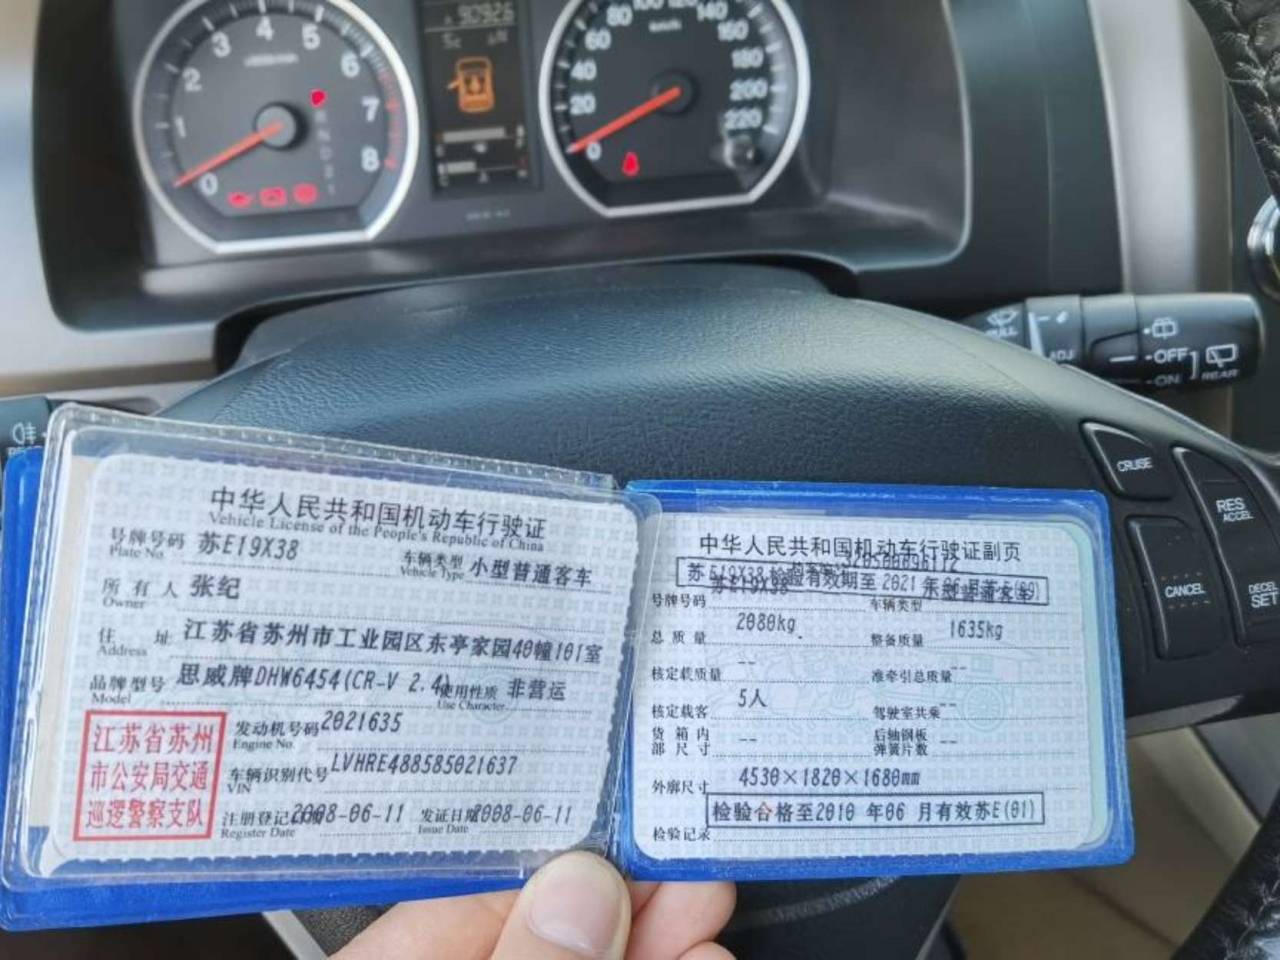 1 2 3 4 5 6 7 8 0
90926
0 20 40 60 80 100 120 140 160 180 200 220
km/h
PULL
ADJ
OFF
ON
REAR
CRUISE
RES
ACCEL
CANCEL
DECEL
SET
中华人民共和国机动车行驶证
Vehicle License of the People's Republic of China
号牌号码 苏E19X38 车辆类型 小型普通客车
Plate No. Vehicle Type
所有人 张纪
Owner
住址 江苏省苏州市工业园区东亭家园40幢101室
Address
品牌型号 思威牌DHW6454(CR-V 2.4) 使用性质 非营运
Model Use Character
江苏省苏州
市公安局交通
巡逻警察支队
发动机号码 2021635
Engine No.
车辆识别代号 LVHRE488585021637
VIN
注册登记 2008-06-11 发证日期 2008-06-11
Register Date Issue Date
中华人民共和国机动车行驶证副页
苏E19X38 检验有效期至 2021 年 06 月 苏E(09)
苏E19X38 小型普通客车
号牌号码 车辆类型
总质量 2080kg 整备质量 1635kg
核定载质量 -- 准牵引总质量 --
核定载客 5人 驾驶室共乘 --
货箱内部尺寸 -- 后轴钢板弹簧片数 --
外廓尺寸 4530×1820×1680mm
检验合格至2010 年06 月有效苏E(01)
检验记录